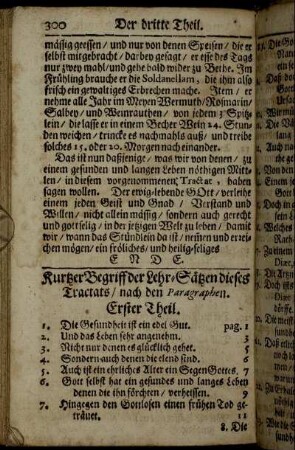 300 Der dritte Theil.
mässig geessen / und nur von denen Speisen / die er
selbst mitgebracht / da-bey gesagt / er esse des Tags
nur zwey mahl / und gehe bald wider zu Bethe. Im
Frühling brauche er die Soldanellam, die ihm also
frisch ein gewaltiges Erbrechen mache. Item / er
nehme alle Jahr im Meyen Wermuth / Rosmarin /
Salbey / und Weinrauthen / von jedem 3 Spitz-
lein / die lasse er in einem Becher Wein 24. Stun-
den weichen / trincke es nachmahls auß / und treibe
solches 15. oder 20. Morgen nach einander.
Das ist nun dasjenige / was wir von denen / zu
einem gesunden und langen Leben nöthigen Mit-
len / in diesem vorgenommenen Tractat, haben
sagen wollen. Der ewig-lebende GOtt / verleihe
einem jeden Geist und Gnad / Verstand und
Willen / nicht allein mässig / sondern auch gerecht
und gottselig / in der jetzigen Welt zu leben / damit
wir / wann das Stündlein da ist / nennen und errei-
chen mögen / ein fröliches / und heilig-seliges
E N D E.
Kurtzer Begriff der Lehr-Sätzen dieses
Tractats / nach den Paragraphen.
Erster Theil.
1. Die Gesundheit ist ein edel Gut. pag. 1
2. Und das Leben sehr angenehm. 3
3. Nicht nur denen es glücklich gehet. 5
4. Sondern auch denen die elend sind. 6
5. Auch ist ein ehrliches Alter ein Segen Gottes. 7
6. Gott selbst hat ein gesundes und langes Leben
denen die ihn förchten / verheissen. 9
7. Hingegen den Gottlosen einen frühen Tod ge-
träuet. 11
8. Die